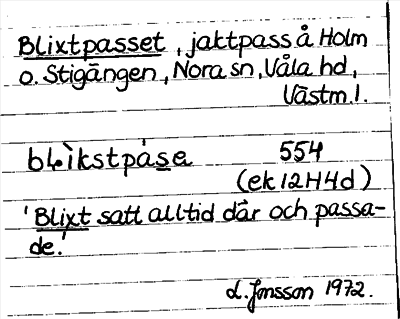 Blixtpasset, jaktpass å Holm
o. Stigången, Nora sn, Våla hd,
Västm.l.
bḷìkstpàse 554
(ek 12H4d)
'Blixt satt alltid där och passa-
de.'
L. Jonsson 1972.